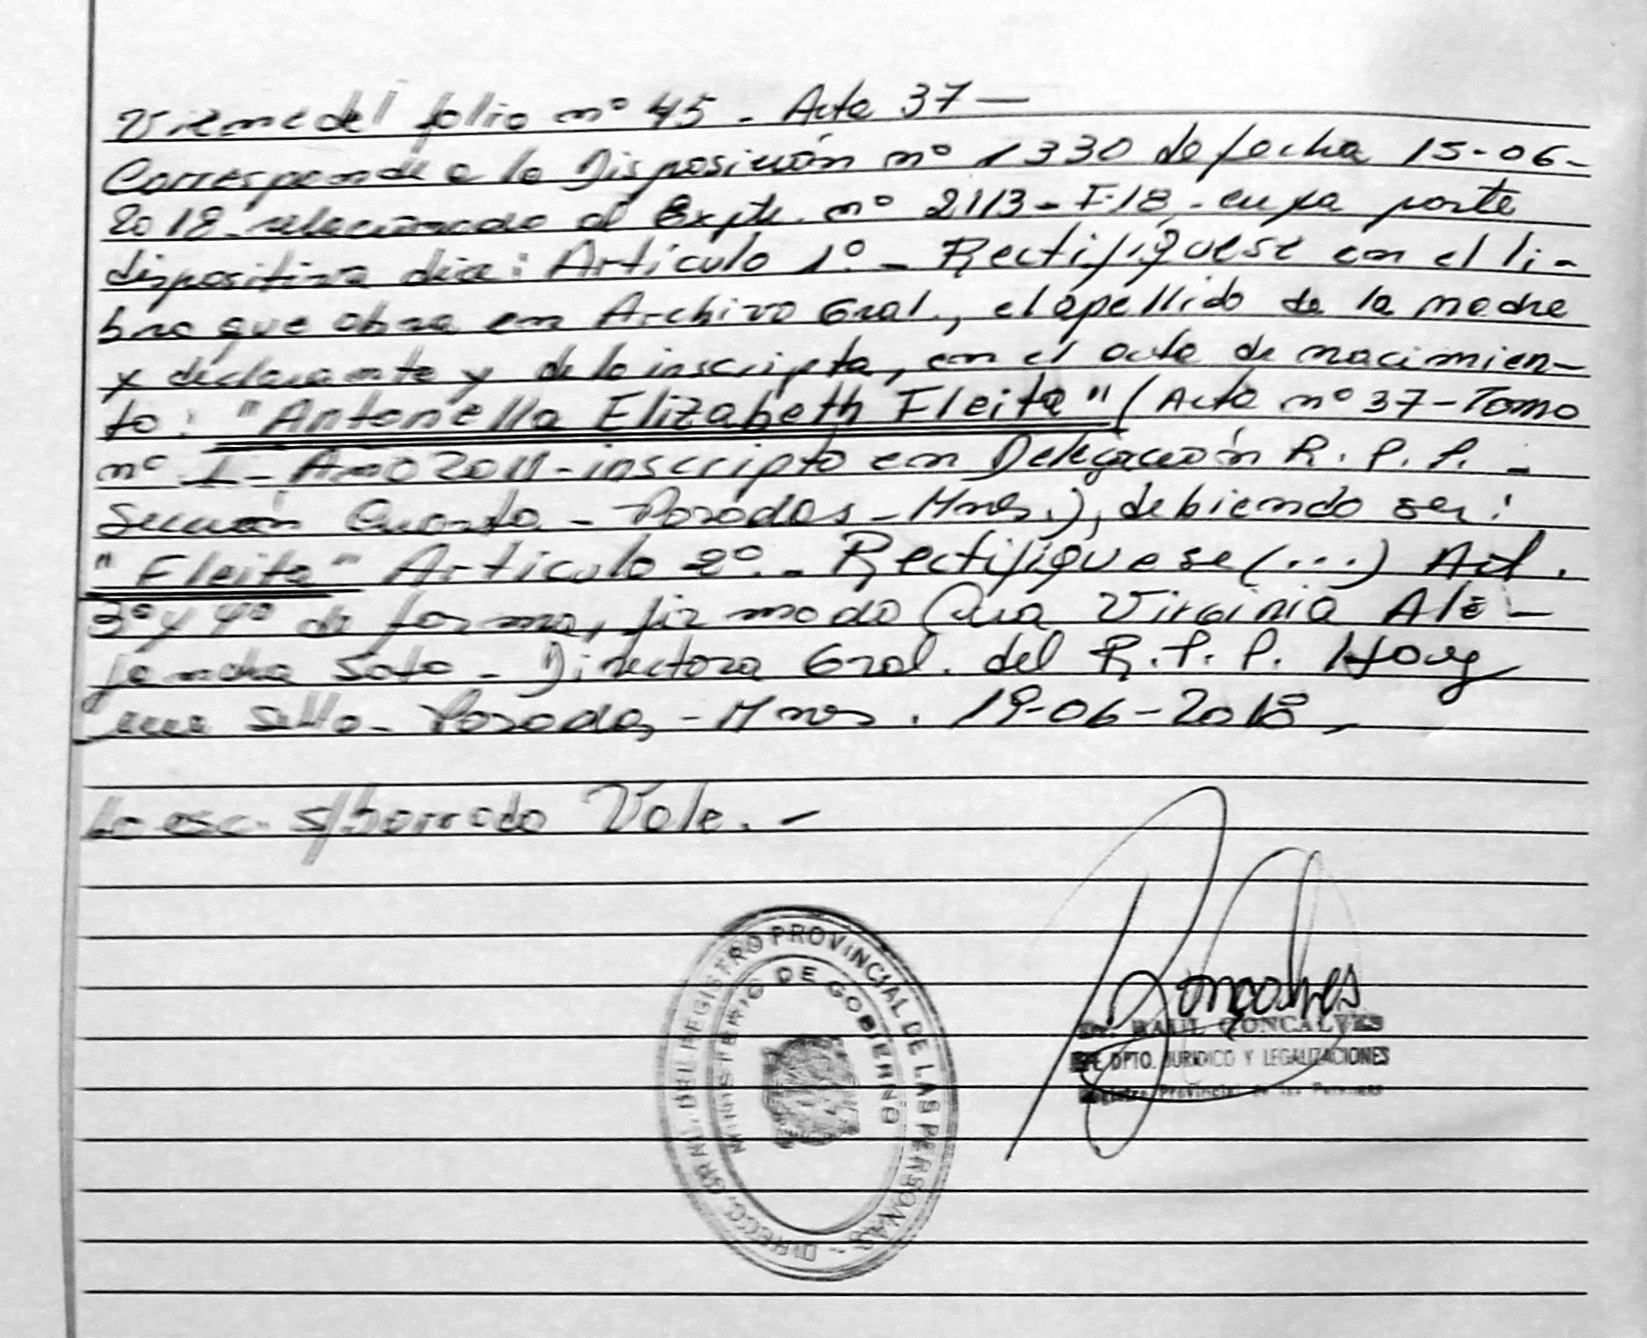 Viene del folio nº 45 - Acta 37 —
Corresponde a la Disposición nº 1330 de fecha 15-06-
2018 relacionado al Expte. nº 2113-F-18 - cuya parte
dispositiva dice: Artículo 1º - Rectifíquese en el li-
bro que obra en Archivo Gral., el apellido de la madre
y declarante y de la inscripta, en el acta de nacimien-
to: "Antonella Elizabeth Fleita" (Acta nº 37-Tomo
nº 1 - Año 2011-inscripto en Delegación R. P. P. -
Sección Cuarta - Posadas - Mnes.), debiendo ser:
"Fleita" Artículo 2º - Rectifíquese (...) Art.
3º y 4º de forma, firmado Virginia Ale-
jandra Soto - Directora Gral. del R. P. P. Hay
un sello - Posadas - Mnes. 19-06-2018
Lo esc. s/borrado Vale. -
DIRECC. GRAL. DEL REGISTRO PROVINCIAL DE LAS PERSONAS -
MINISTERIO DE GOBIERNO
Goncalves
Dr. RAUL GONCALVES
DPTO. JURIDICO Y LEGALIZACIONES
Registro Provincial de las Personas